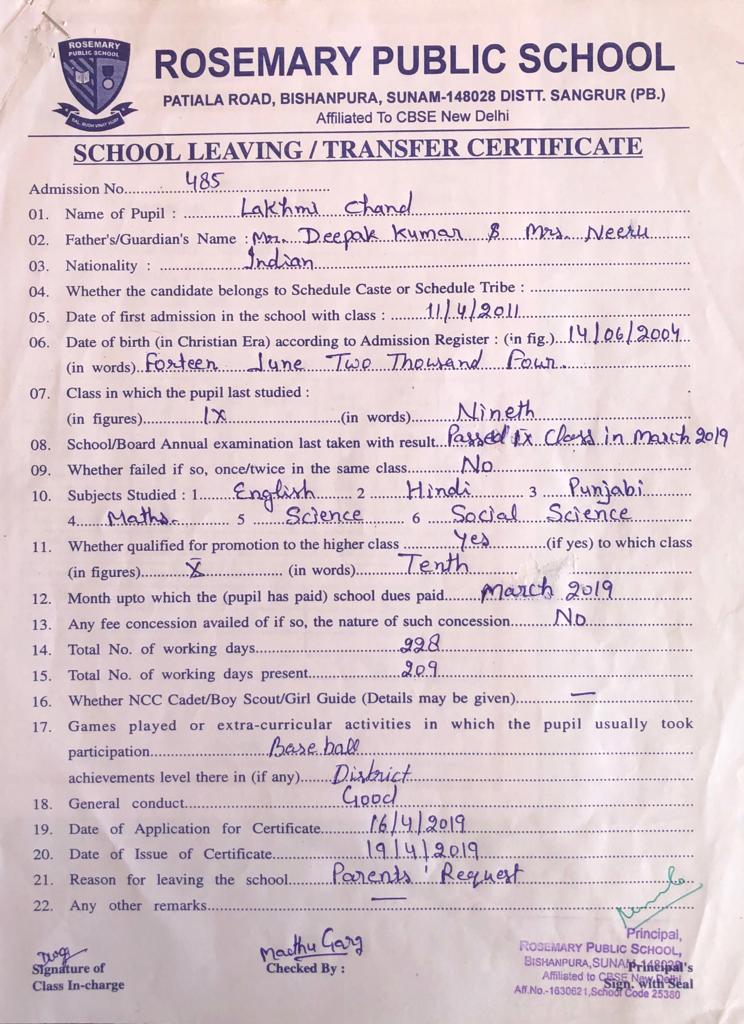 ROSEMARY
PUBLIC SCHOOL
ROSEMARY PUBLIC SCHOOL
PATIALA ROAD, BISHANPURA, SUNAM-148028 DISTT. SANGRUR (PB.)
Affiliated To CBSE New Delhi
SCHOOL LEAVING / TRANSFER CERTIFICATE
Admission No. 485
01. Name of Pupil : Lakhmi Chand
02. Father's/Guardian's Name : Mr. Deepak Kumar & Mrs. Neeru
03. Nationality : Indian
04. Whether the candidate belongs to Schedule Caste or Schedule Tribe :
05. Date of first admission in the school with class : 11/4/2011
06. Date of birth (in Christian Era) according to Admission Register : (in fig.) 14/06/2004
(in words) Forteen June Two Thousand Four.
07. Class in which the pupil last studied :
(in figures) IX (in words) Nineth
08. School/Board Annual examination last taken with result Passed IX Class in March 2019
09. Whether failed if so, once/twice in the same class No
10. Subjects Studied : 1 English 2 Hindi 3 Punjabi
4 Maths. 5 Science 6 Social Science
11. Whether qualified for promotion to the higher class Yes (if yes) to which class
(in figures) X (in words) Tenth
12. Month upto which the (pupil has paid) school dues paid March 2019
13. Any fee concession availed of if so, the nature of such concession No
14. Total No. of working days 228
15. Total No. of working days present 209
16. Whether NCC Cadet/Boy Scout/Girl Guide (Details may be given) —
17. Games played or extra-curricular activities in which the pupil usually took
participation Base ball
achievements level there in (if any) District
18. General conduct Good
19. Date of Application for Certificate 16/4/2019
20. Date of Issue of Certificate 19/4/2019
21. Reason for leaving the school Parents' Request
22. Any other remarks —
Signature of
Class In-charge
Madhu Garg
Checked By :
Principal,
ROSEMARY PUBLIC SCHOOL,
BISHANPURA, SUNAM-148028
Affiliated to CBSE New Delhi
Aff.No.-1630621, School Code 25380
Principal's
Sign. with Seal